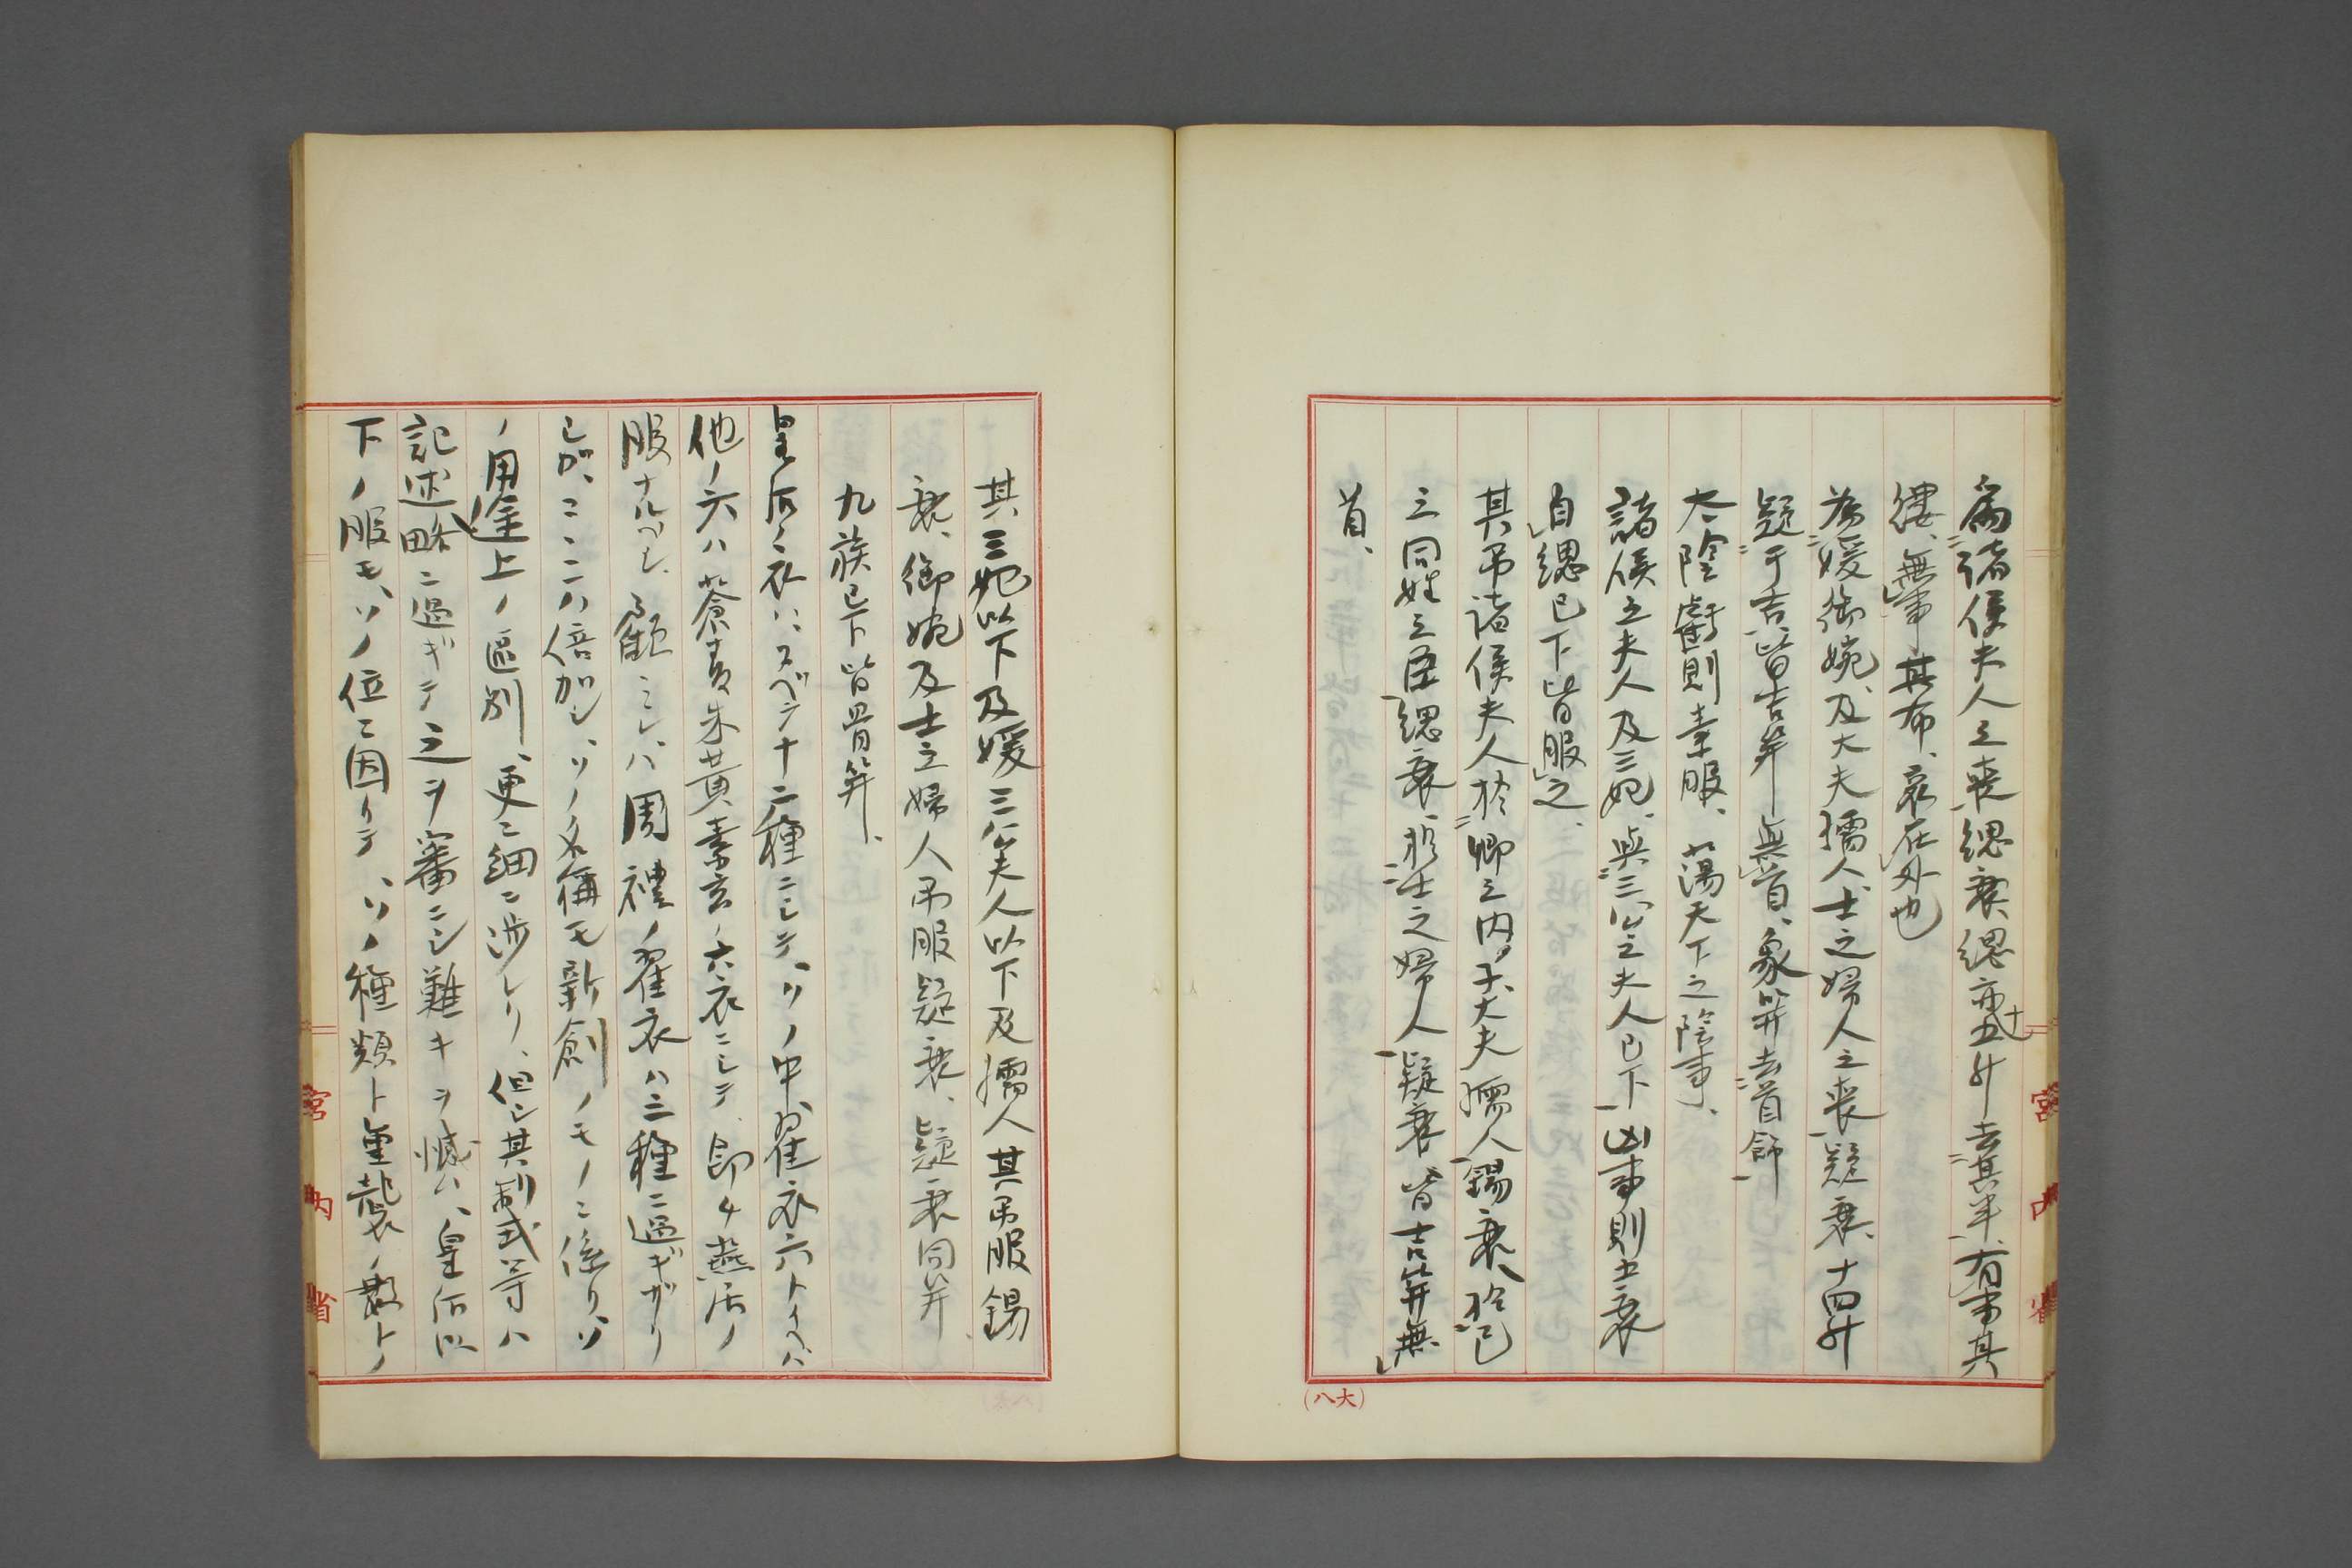 為諸侯夫人之喪、緦衰、緦亦十五升去其半、有事其
縷、無事其布、哀在外也
為媛御婉、及大夫孺人、士之婦人之喪、疑衰、十四升
疑于吉、皆吉笄無首、象笄去首飾
太陰虧則素服、蕩天下之陰事、
諸侯之夫人及三妃、與三公之夫人已下凶事則五衰
自緦已下皆服之、
其弔諸侯夫人於卿之内子、大夫孺人、錫衰、於己
之同姓之臣、緦衰、於士之婦人、疑衰、皆吉笄無
首、
其三妃以下及媛、三公夫人以下及孺人其弔服錫
衰、御婉及士之婦人弔服疑衰、疑衰同笄、
九族已下皆骨笄、
皇后ノ衣ハ、スベテ十二種ニシテ、ソノ中、翟衣六トイヘバ
他ノ六ハ蒼青朱黄素玄ノ六衣ニシテ、即チ燕居ノ
服ナルベシ、顧ミレバ周禮ノ翟衣ハ三種ニ過ギザリ
シガ、ココニハ倍加シ、ソノ名稱モ新創ノモノニ係リ、ソ
ノ用途上ノ區別、更ニ細ニ渉レリ、但シ其制式等ハ
記述略ニ過ギテ之ヲ審ニシ難キヲ憾ム、皇后以
下ノ服モ、ソノ位ニ因リテ、ソノ種類ト重襲ノ數トノ
宮内省
宮内省
(大八)